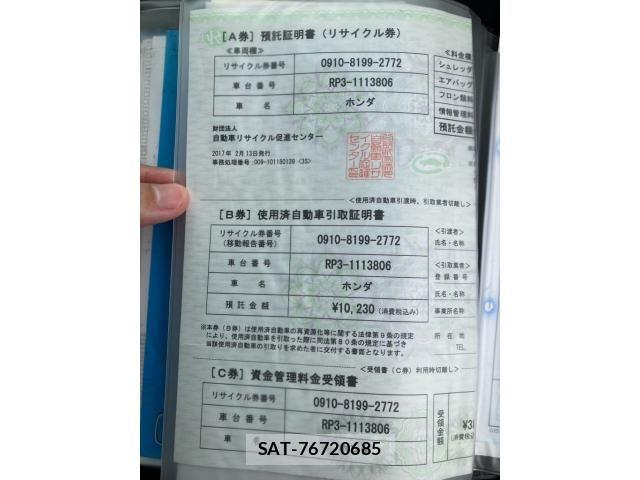 ［A券］預託証明書（リサイクル券）
＜車両欄＞
＜料金種
リサイクル券番号 0910-8199-2772
シュレッダ
車台番号 RP3-1113806
エアバッグ
フロン類料
車名 ホンダ
情報管理料
預託金額
財団法人
自動車リサイクル促進センター
2017年 2月13日発行
事務処理番号:009-101180139 <3S>
＜使用済自動車引渡時、引取業者切離し＞
［B券］使用済自動車引取証明書
リサイクル券番号
（移動報告番号） 0910-8199-2772
＜引渡者＞
氏名・名称
車台番号 RP3-1113806
＜引取業者＞
登録番号
車名 ホンダ
氏名・名称
預託金額 ¥10,230（消費税込み）
事業所名称
※本券（B券）は使用済自動車の再資源化等に関する法律第９条の規定
により、使用済自動車を引取った際に同法第８０条の規定に基づき
当該使用済自動車の引取りを求めた者に交付する書面となります。
所在地
TEL.
＜受領書（C券）利用時切離し＞
［C券］資金管理料金受領書
リサイクル券番号 0910-8199-2772
車台番号 RP3-1113806
受領金額
¥38
（消費税込
車
SAT-76720685